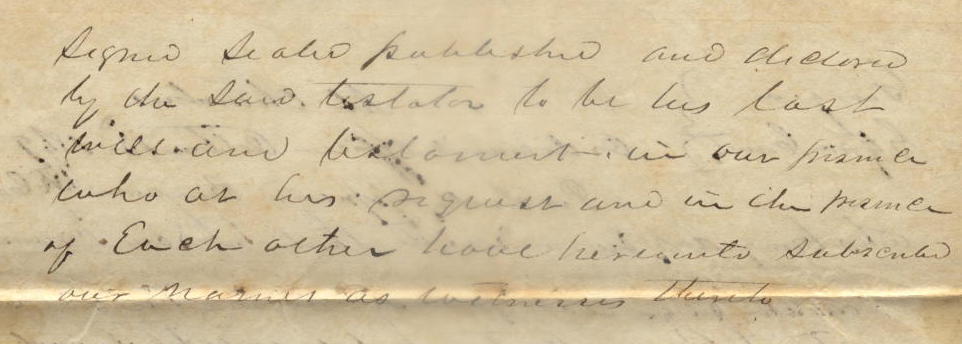 Signed Sealed published and declared
by the said testator to be his last
will and testament in our presence
who at his request and in the presence
of Each other have hereunto subscribed
our Names as witnesses thereto